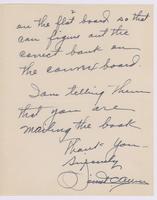 on the flat board so that
can figure out the
correct bank on
the course board
I am telling them
that you are
mailing the book
Thank you
Sincerely